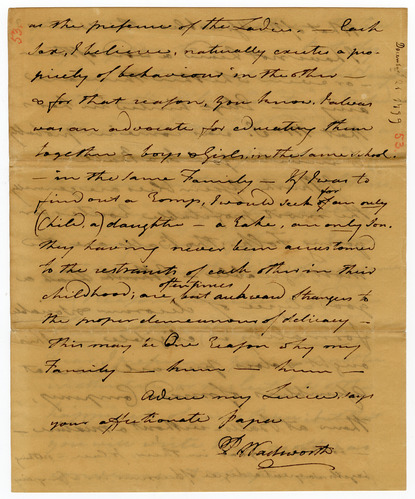 53
December 21 1799
53
as the presence of the Ladies. — Each
Sex, I believe, naturally excites a pro-
priety of behaviour in the other —
& for that reason, you know, I always
was an advocate for educating them
together — boys & Girls, in the same school
— in the same Family — If I was to
find out a Romp, I would seek for an only
Child, a) daughter — a Rake, an only Son.
they having never been accustomed
to the restraints of each other in their
childhood; are, oftentimes, but awkward Strangers to
the proper demeanours of delicacy —
This may be One reason why my
Family — hum — hum —
Adieu my Luice, says
your affectionate Papa
P Wadsworth